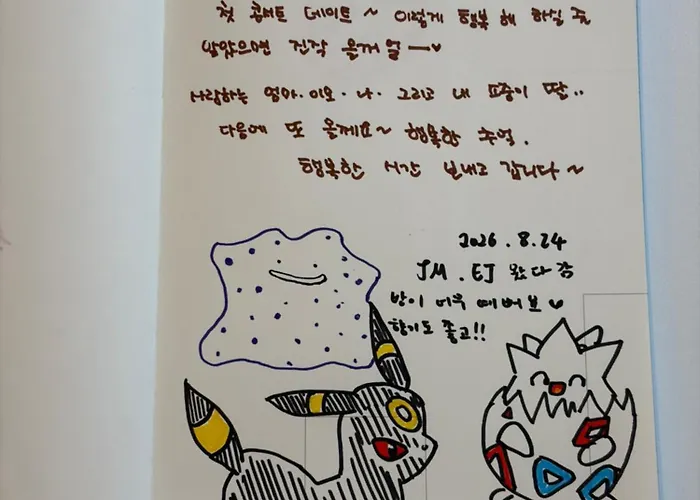 첫 콘서트 데이트~ 이렇게 행복해 하실 줄
알았으면 진작 올거얼ㅡ♥
사랑하는 엄마. 이모. 나. 그리고 내 소중이 딸..
다음에 또 올께요~ 행복한 추억.
행복한 시간 보내고 갑니다~
2026. 8. 24
JM. EJ 왔다감
방이 너무 예뻐보♥
향기도 좋고!!